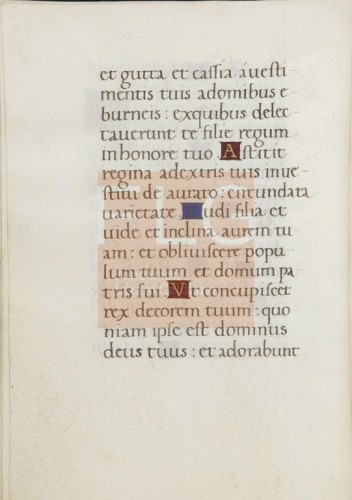 et gutta et cassia a uesti
mentis tuis adomibus e
burneis : exquibus delec
tauerunt te filie regum
in honore tuo Astitit
regina adextris tuis inue
stitu de aurato : circundata
uarietate udi filia et
uide et inclina aurem tu
am : et obliuiscere popu
lum tuum et domum pa
tris tui Ut concupiscet
rex decorem tuum : quo
niam ipse est dominus
deus tuus : et adorabunt